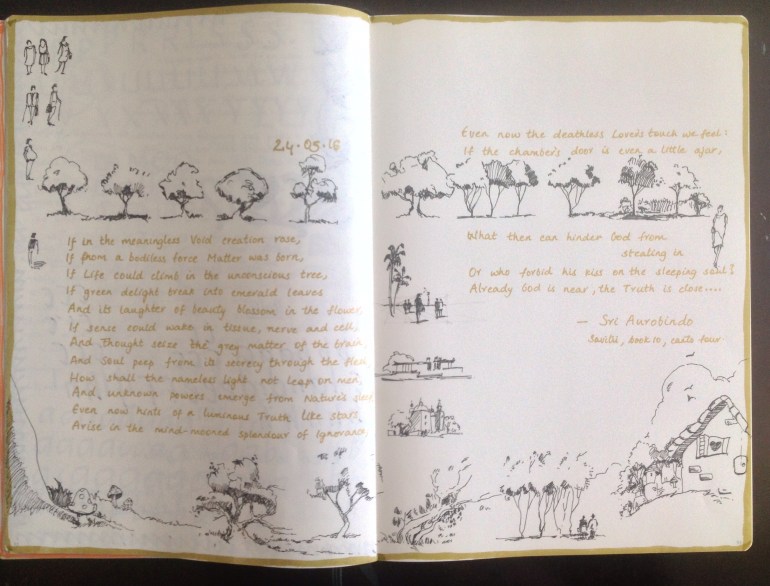 24.05.16
If in the meaningless Void creation rose,
If from a bodiless force Matter was born,
If Life could climb in the unconscious tree,
If green delight break into emerald leaves
And its laughter of beauty blossom in the flower,
If sense could wake in tissue, nerve and cell,
And Thought seize the grey matter of the brain,
And Soul peep from its secrecy through the flesh,
How shall the nameless light not leap on men,
And unknown powers emerge from Nature's
Even now hints of a luminous Truth like stars
Arise in the mind-mooned splendour of Ignorance,
Even now the deathless Lover's touch we feel:
If the chamber's door is even a little ajar,
What then can hinder God from
stealing in
Or who forbid his kiss on the sleeping soul?
Already God is near, the Truth is close....
— Sri Aurobindo
Savitri, book 10, canto four